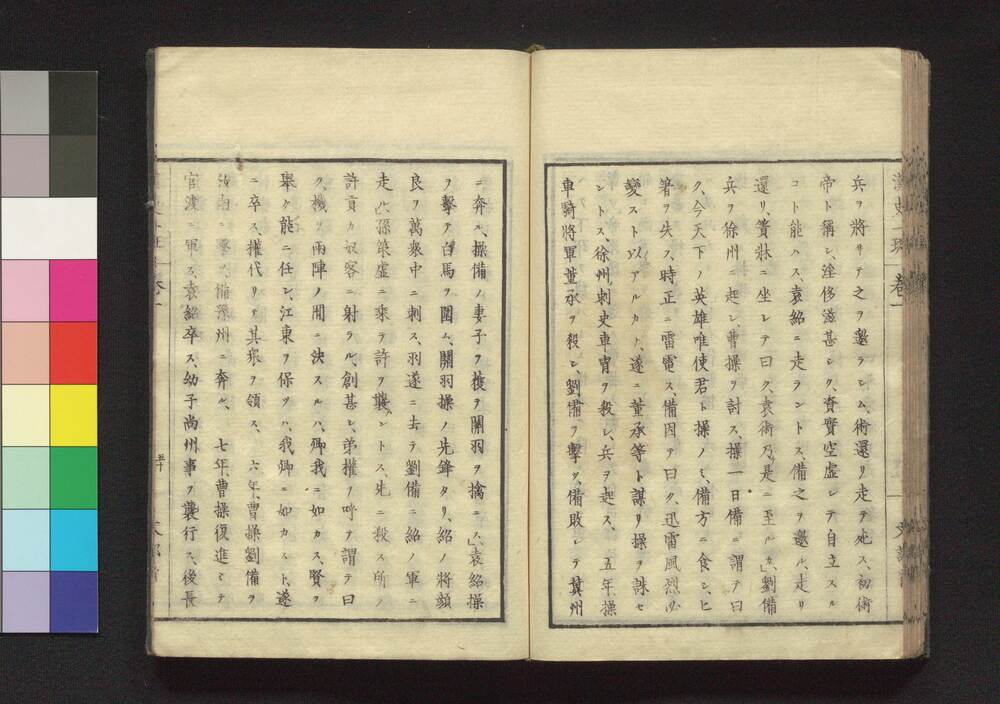 兵ヲ將ヰテ之ヲ邀ラシム、術還リ走テ死ス、初術
帝ト稱シ、淫侈滋甚シク、資實空虛シテ自立スル
コト能ハス、袁紹ニ走ラントス、備之ヲ邀ル、走リ
還リ、簀牀ニ坐シテ曰ク、袁術乃是ニ至ルカ」劉備
兵ヲ徐州ニ起シ、曹操ヲ討ス、操一日備ニ謂テ曰
ク、今天下ノ英雄唯使君ト操ノミ、備方ニ食シ、ヒ
箸ヲ失ス、時正ニ雷電ス、備因テ曰ク、迅雷風烈必
變スト以アルカト、遂ニ董承等ト謀リ操ヲ誅セ
ントス、徐州刺史車冑ヲ殺シ、兵ヲ起ス、五年操
車騎將軍董承ヲ殺シ、劉備ヲ擊ツ、備敗レテ冀州
ニ奔ル、操備ノ妻子ヲ獲テ關羽ヲ擒ニス、」袁紹操
ヲ擊テ白馬ヲ圍ム、關羽操ノ先鋒タリ、紹ノ將顏
良ヲ萬衆中ニ刺ス、羽遂ニ去テ劉備ニ紹ノ軍ニ
走ル」孫策虛ニ乘テ許ヲ襲ハントス、先ニ殺ス所ノ
許貢カ奴客ニ射ラル、創甚シ、弟權ヲ呼テ謂テ曰
ク、機ヲ兩陣ノ間ニ決スルハ、卿我ニ如カス、賢ヲ
擧ケ能ニ任シ、江東ヲ保ツハ、我卿ニ如カスト、遂
ニ卒ス、權代リテ其衆ヲ領ス、六年、曹操劉備ヲ
汝南ニ擊ツ、備豫州ニ奔ル、七年、曹操復進ミテ
官渡ニ軍ス、袁紹卒ス、幼子尚州事ヲ襲行ス、後長